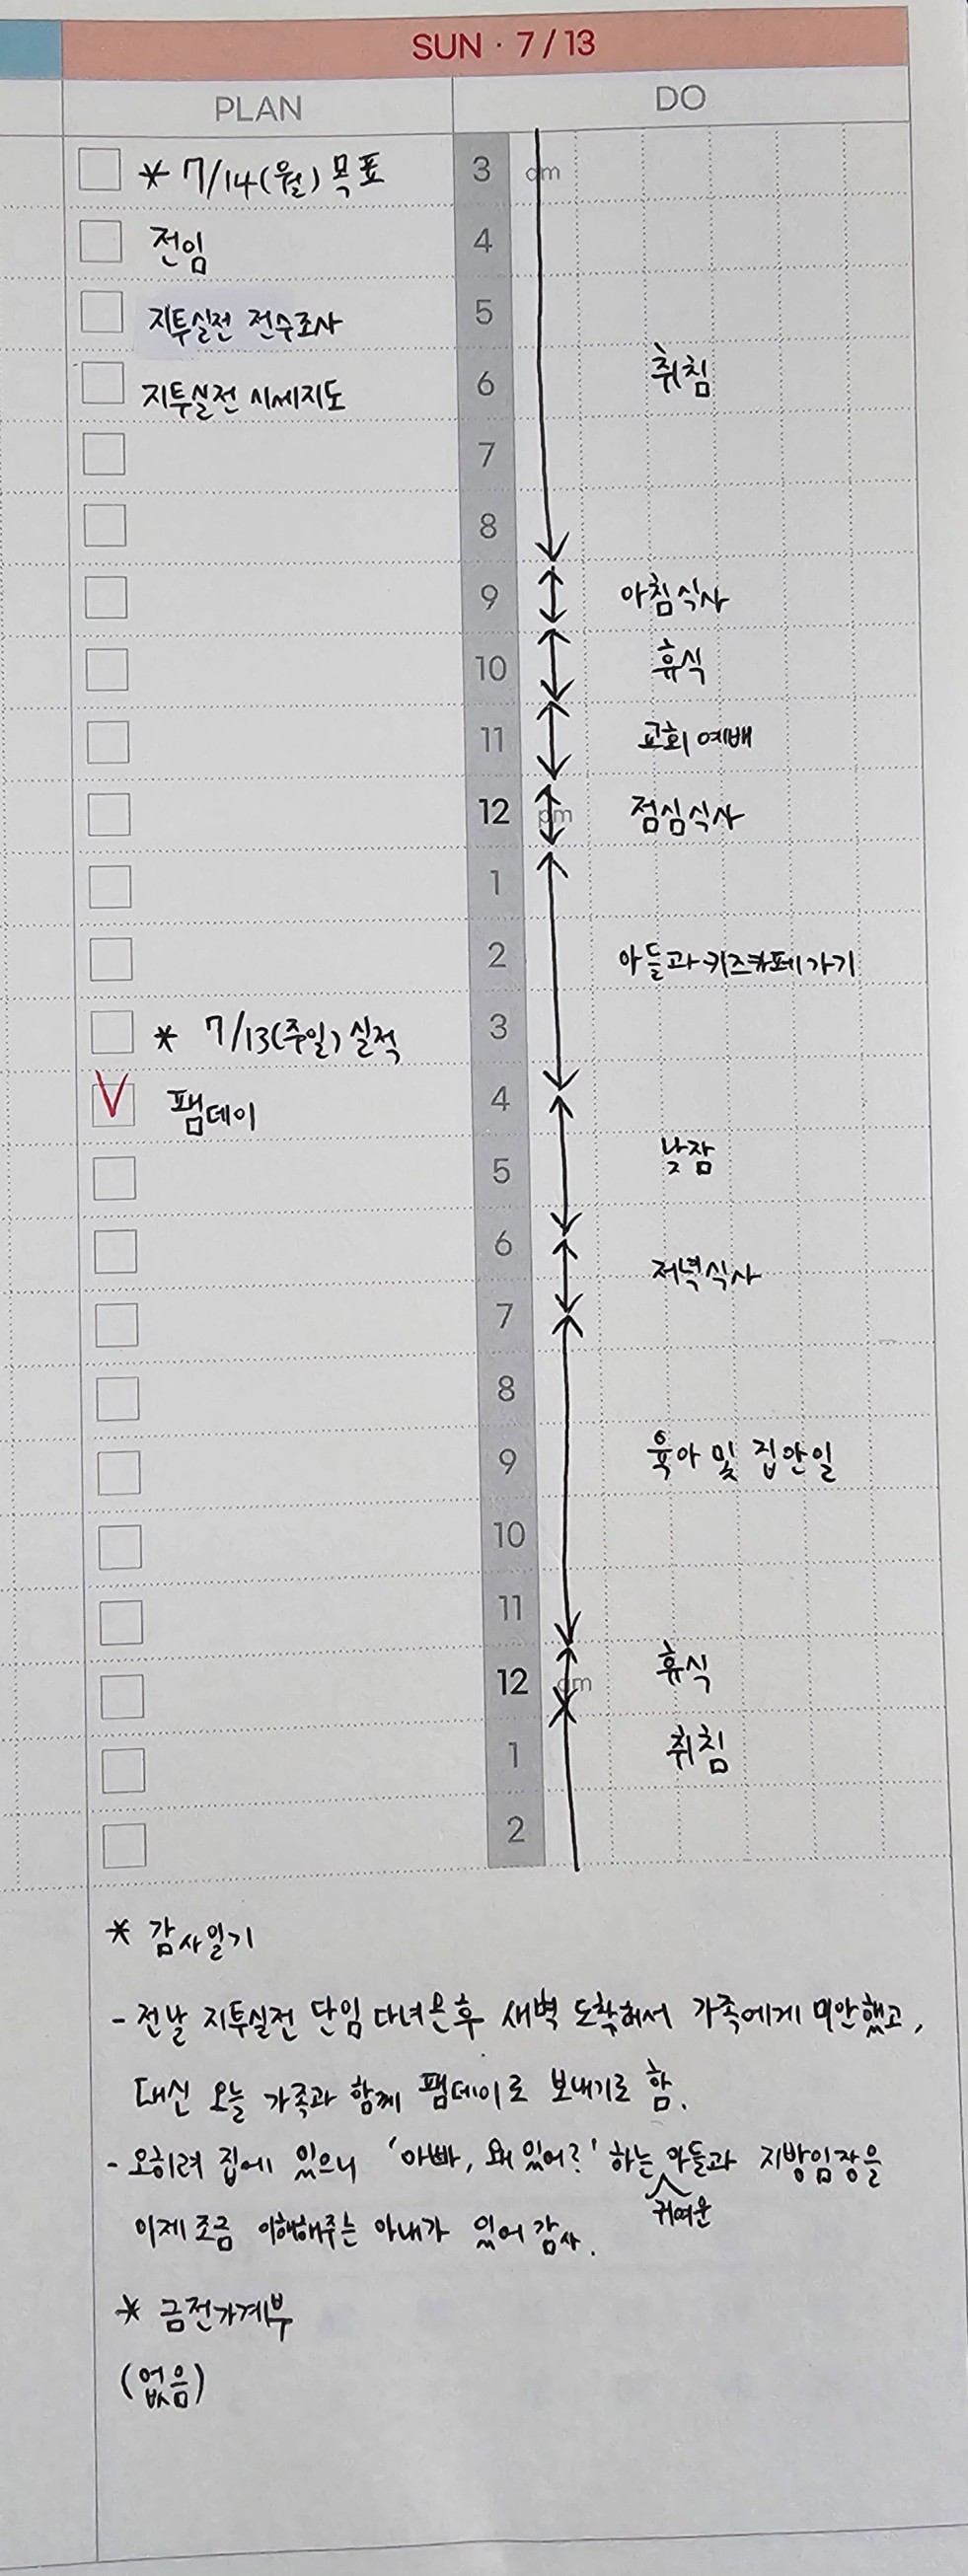 SUN · 7/13
PLAN
DO
* 7/14(월) 목표
전임
지투실전 전수조사
지투실전 시세지도
* 7/13(주일) 실적
V 팸데이
3 am
4
5
6 취침
7
8
9 아침식사
10 휴식
11 교회 예배
12 pm 점심식사
1
2 아들과 키즈카페 가기
3
4
5 낮잠
6 저녁식사
7
8
9 육아 및 집안일
10
11
12 am 휴식
1 취침
2
* 감사일기
- 전날 지투실전 단임 다녀온후 새벽 도착해서 가족에게 미안했고,
대신 오늘 가족과 함께 팸데이로 보내기로 함.
- 오히려 집에 있으니 '아빠, 왜 있어?' 하는 귀여운 아들과 지방임장을
이제 조금 이해해주는 아내가 있어 감사.
* 금전가계부
(없음)